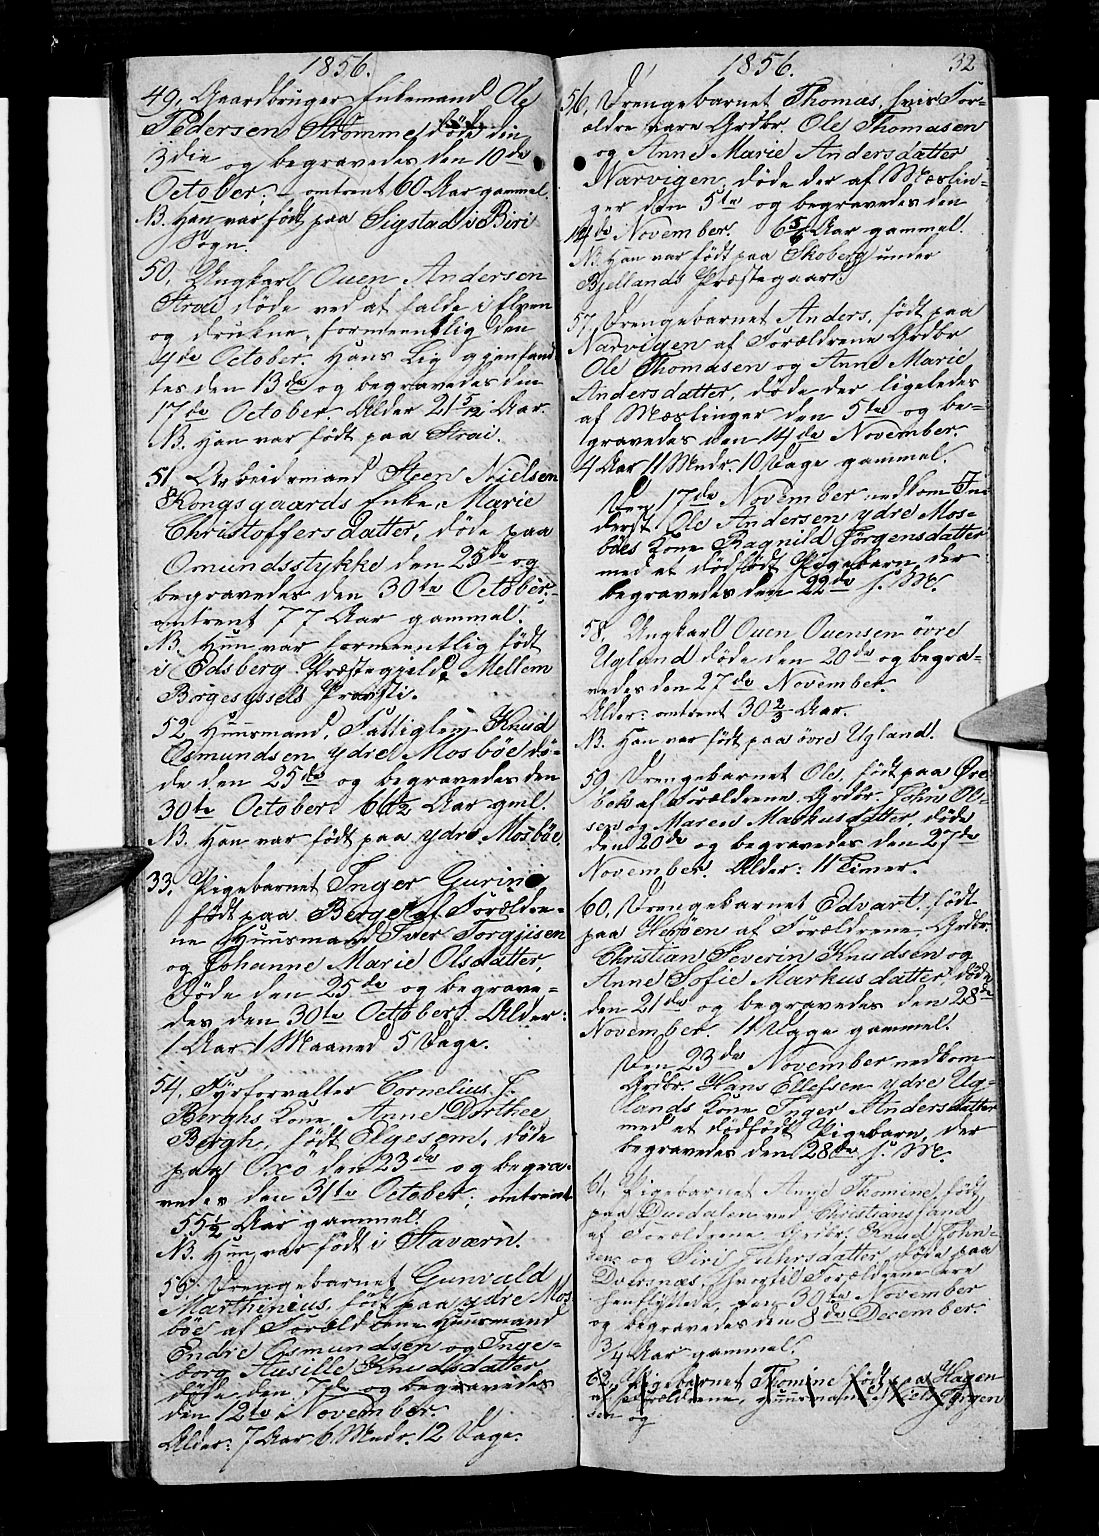 1856.
49, Gaardbruger Enkemand Ole
Pedersen Strømme, døde den
3die og begravedes den 10de
October, omtrent 60 Aar gammel.
NB. Han var født paa Sigstad i Biri
Sogn.
50, Ungkarl Ouen Andersen
Strai døde ved at falde i Elven
og drukne, formeentlig den
4de October. Hans Lig gjenfand-
tes den 13de og begravedes den
17de October. Alder 21 5/12 Aar.
NB. Han var født paa Strai.
51, Arbeidsmand Steen Nielsen
Kongsgaards Enke, Marie
Christoffersdatter, døde paa
Omundsstykke den 25de og
begravedes den 30te October,
omtrent 77 Aar gammel.
NB. Hun var formeentlig født
i Edsberg Præstegjeld, Mellem
Borgesyssels Provsti.
52, Huusmand, Fattiglem Knud
Osmundsen ydre Mosbøe dø-
de den 25de og begravedes den
30te October 66 1/2 Aar gml.
NB. Han var født paa ydre Mosbøe.
33, Pigebarnet Inger Gurine
født paa Berge af Forældre-
ne Huusmand Iver Torgjisen
og Johanne Marie Olsdatter,
døde den 25de og begrave-
des den 30te October. Alder:
1 Aar 1 Maaned 5 Dage.
54, Fyrforvalter Cornelius J.
Berghs Kone, Anne Dorthee
Bergh, født Elgesem, døde
paa Oxø den 23de og begra-
vedes den 31te October, omtrent
55 1/2 Aar gammel.
NB. Hun var født i Staværn.
55, Drengebarnet Gunvald
Marthinius, født paa ydre Mos-
bøe af Forældrene Huusmand
Endre Osmundsen og Inge-
borg Aasille Knudsdatter
døde den 7de og begravedes
den 12te November.
Alder: 7 Aar 6 Mndr. 12 Dage.
1856.
32
56, Drengebarnet Thomas, hvis For-
ældre vare Grdbr. Ole Thomasen
og Anne Marie Andersdatter
Narvigen, døde der af Mæslin-
ger den 5te og begravedes den
14de November. 6 5/6 Aar gammel.
NB. Han var født paa Skoberg under
Bjellands Præstegaard.
57, Drengebarnet Anders, født paa
Narvigen af Forældrene Grdbr
Ole Thomasen og Anne Marie
Andersdatter, døde der ligeledes
af Mæslinger den 5te og be-
gravedes den 14de November.
4 Aar 11 Mndr. 10 Dage gammel.
Den 17de November nedkom In-
derst Ole Andersen ydre Mos-
bøes Kone Ragnild Jørgensdatter
med et dødfødt Pigebarn, der
begravedes den 22de s. M.
58, Ungkarl Ouen Ouensen øvre
Ugland døde den 20de og begra-
vedes den 27de November.
Alder: omtrent 30 2/3 Aar.
NB. Han var født paa øvre Ugland.
59, Drengebarnet Ole, født paa Øre-
bek af Forældrene Grdbr. John Ol-
sen og Maren Markusdatter, døde
den 20de og begravedes den 27de
November. Alder: 11 Timer.
60, Drengebarnet Edvart, født
paa Herøen af Forældrene Grdbr.
Christian Severin Knudsen og
Anne Sofie Markusdatter, døde
den 21de og begravedes den 28de
November. 11 Dage gammel.
Den 23de November nedkom
Grdbr. Hans Ellefsen ydre Ug-
lands Kone Inger Andersdatter
med et dødfødt Pigebarn, der
begravedes den 28de s. M.
61, Pigebarnet Anne Thomine, født
paa Duedalen ved Christiansand
af Forældrene, Grdbr. Knud John-
sens og Siri Fuhrsdatter, døde paa
Dversnæs, hvortil Forældrene ere
henflyttede, den 30te November
og begravedes den 8de December.
3/4 Aar gammel.
62, Pigebarnet Thomine født paa Hagen
af Forældrene, Huusmand Niels Jørgen
sen og